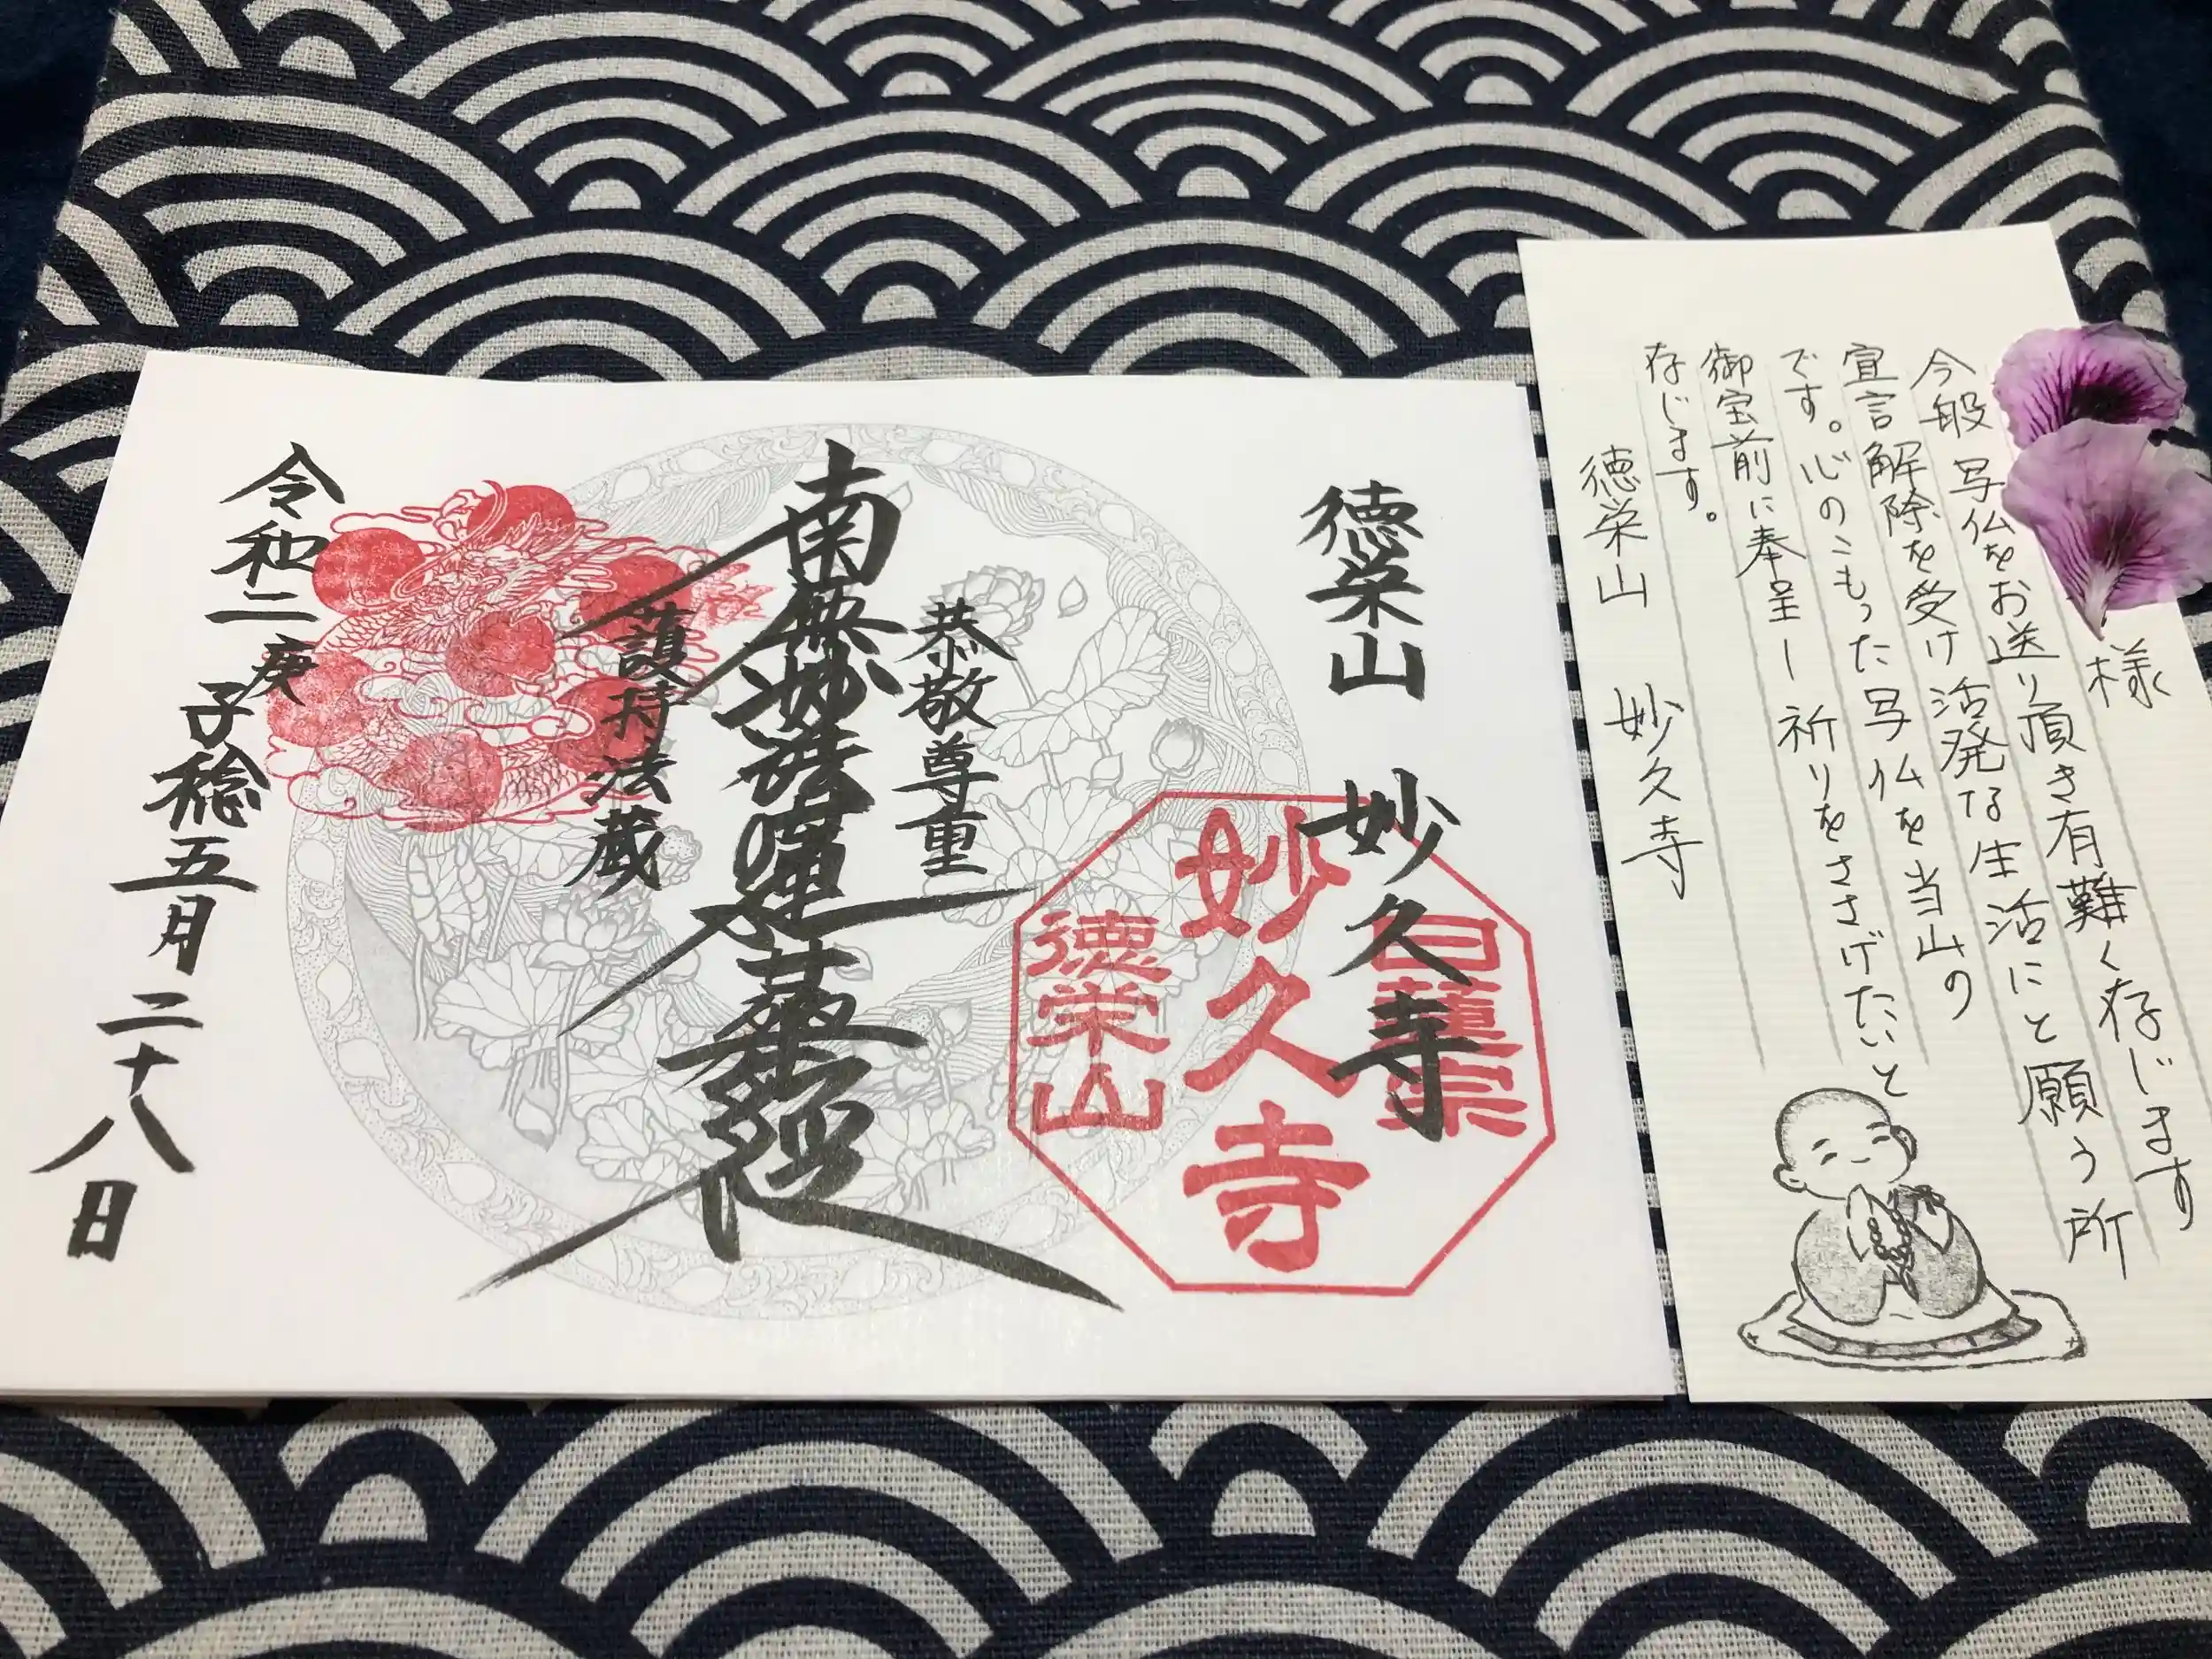 徳栄山 妙久寺
日蓮宗
妙久寺
徳栄山
恭敬尊重
南無妙法蓮華経
護持法蔵
令和二庚子稔五月二十八日
様
今般写仏をお送り頂き有難く存じます
宣言解除を受け活発な生活にと願う所
です。心のこもった写仏を当山の
御宝前に奉呈し祈りをささげたいと
存じます。
徳栄山 妙久寺